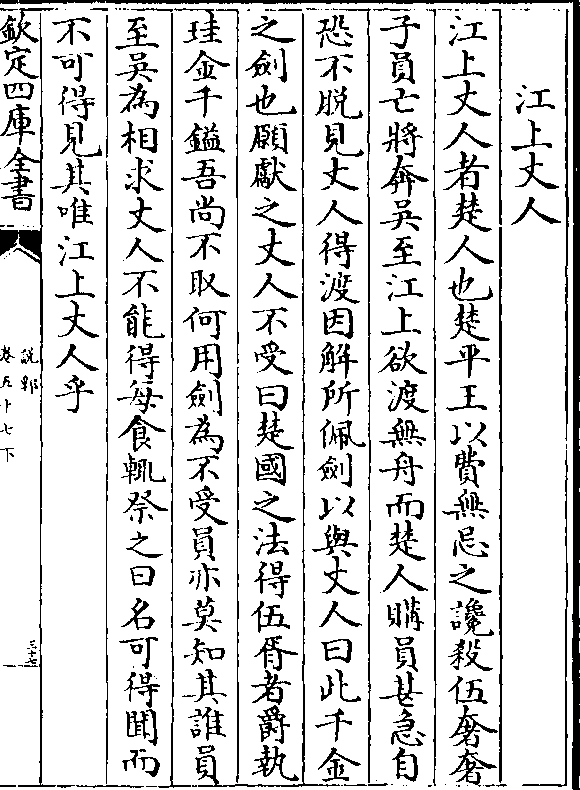 江上丈人
江上丈人者楚人也楚平王以費無忌之讒殺伍奢奢
子員亡將奔吳至江上欲渡無舟而楚人購員甚急自
恐不脱見丈人得渡因解所佩劍以與丈人曰此千金
之劍也願獻之丈人不受曰楚國之法得伍胥者爵執
珪金千鎰吾尚不取何用劍為不受員亦莫知其誰員
至吳為相求丈人不能得每食輒祭之曰名可得聞而
不可得見其唯江上丈人乎
欽定四庫全書
説郛
卷五十七下
三十七